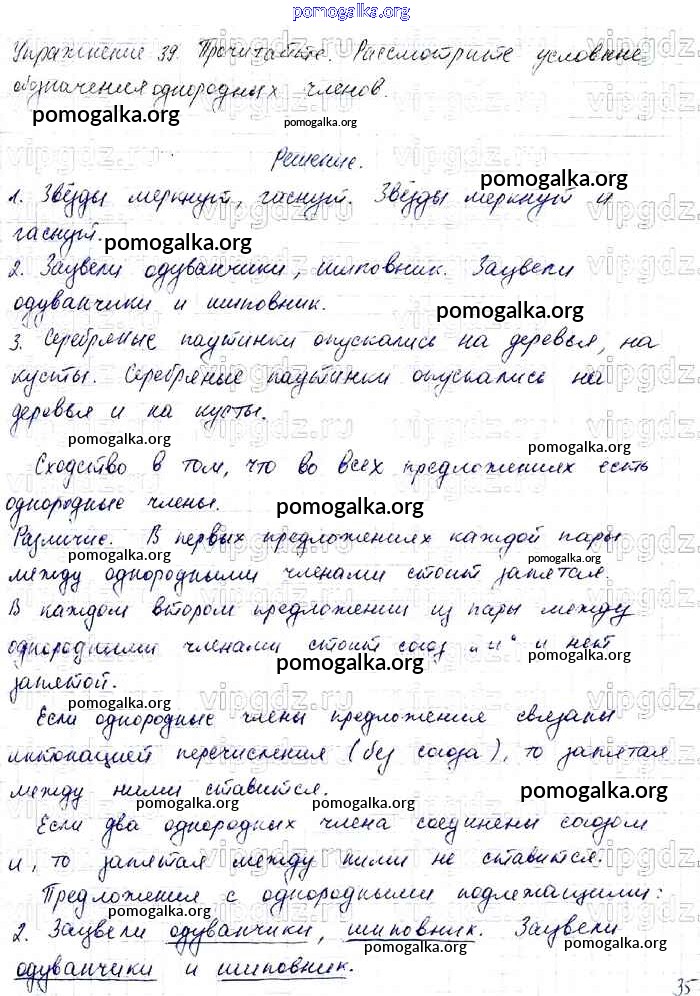 pomogalka.org
Упражнение 39. Прочитайте. Рассмотрите условные
обозначения однородных членов.
pomogalka.org pomogalka.org
Решение.
pomogalka.org
1. Звёзды меркнут, гаснут. Звёзды меркнут и
гаснут.
pomogalka.org
2. Зацвели одуванчики, шиповник. Зацвели
одуванчики и шиповник.
pomogalka.org
3. Серебряные паутинки опускались на деревья, на
кусты. Серебряные паутинки опускались на
деревья и на кусты.
pomogalka.org pomogalka.org
Сходство в том, что во всех предложениях есть
однородные члены.
pomogalka.org
Различие. В первых предложениях каждой пары
pomogalka.org pomogalka.org
между однородными членами стоит запятая.
В каждом втором предложении из пары между
однородными членами стоит союз „и" и нет
pomogalka.org pomogalka.org
запятой.
pomogalka.org
Если однородные члены предложения связаны
интонацией перечисления (без союза), то запятая
между ними ставится.
pomogalka.org pomogalka.org pomogalka.org
Если два однородных члена соединены союзом
и, то запятая между ними не ставится.
Предложения с однородными подлежащими:
pomogalka.org
2. Зацвели одуванчики, шиповник. Зацвели
pomogalka.org pomogalka.org
одуванчики и шиповник.
35
vipgdz.ru